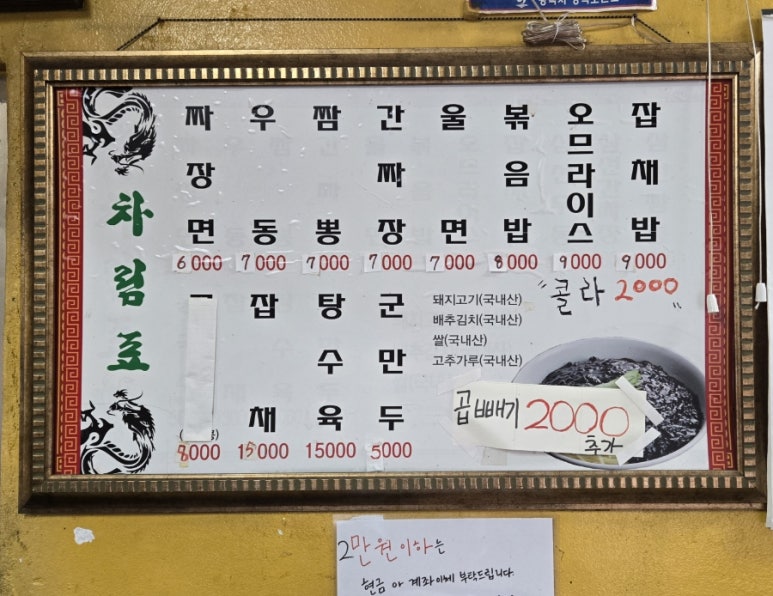 차림표
짜장면 6000
우동 7000
짬뽕 7000
간짜장 7000
울면 7000
볶음밥 8000
오므라이스 9000
잡채밥 9000
"콜라 2000"
8000
잡채 15000
탕수육 15000
군만두 5000
돼지고기(국내산)
배추김치(국내산)
쌀(국내산)
고추가루(국내산)
곱빼기 2000
추가
2만원이하는
현금 아 계좌이체 부탁드립니다